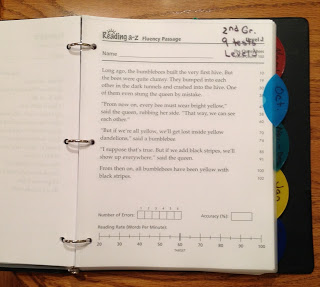 Reading a-z Fluency Passage
2nd Gr.
9 tests
Level J
Level J
Name
Long ago, the bumblebees built the very first hive. But
the bees were quite clumsy. They barged into each
other in the dark tunnels and crashed into the hive. One
of them even stung the queen by mistake.
"From now on, every bee must wear bright yellow,"
said the queen, rubbing her side. "That way, we can see
each other."
"But if we're all yellow, we'll get lost inside yellow
dandelions," said a bumblebee.
"I suppose that's true. But if we add black stripes, we'll
show up everywhere," said the queen.
From then on, all bumblebees have been yellow with
black stripes.
Number of Errors:
1 2 3 4 5 6
Accuracy (%):
Reading Rate (Words Per Minute):
TARGET
Jan